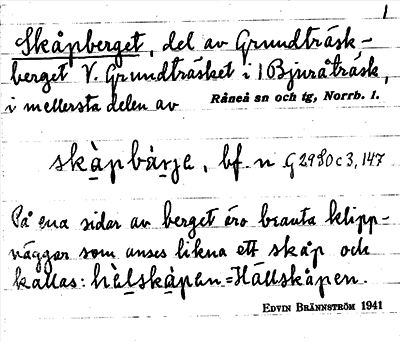 1
Skåpberget, del av Grundträsk-
berget V. Grundträsket i 1 Bjuråträsk,
i mellersta delen av Råneå sn och tg, Norrb. l.
skạ̀pbạ̀rja, bf. n G2980c3, 147
På ena sidan av berget äro branta klipp-
väggar som anses likna ett skåp och
kallas: hạ̀lskạ̀pan = Hällskåpen.
EDVIN BRÄNNSTRÖM 1941